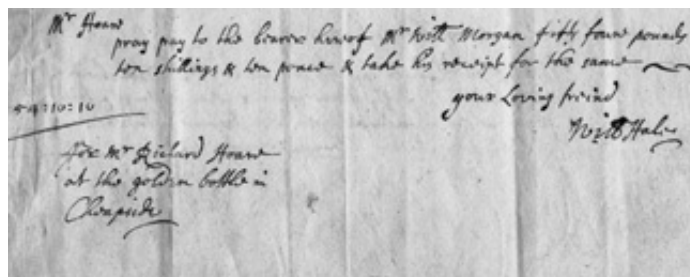 Mr Hoare
pray pay to the bearer hereof Mr Will Morgan fifty foure pounds
ten shillings & ten pence & take his receipt for the same
your Loving friend
54:10:10
Will Hale
for Mr Richard Hoare
at the golden bottle in
Cheapside